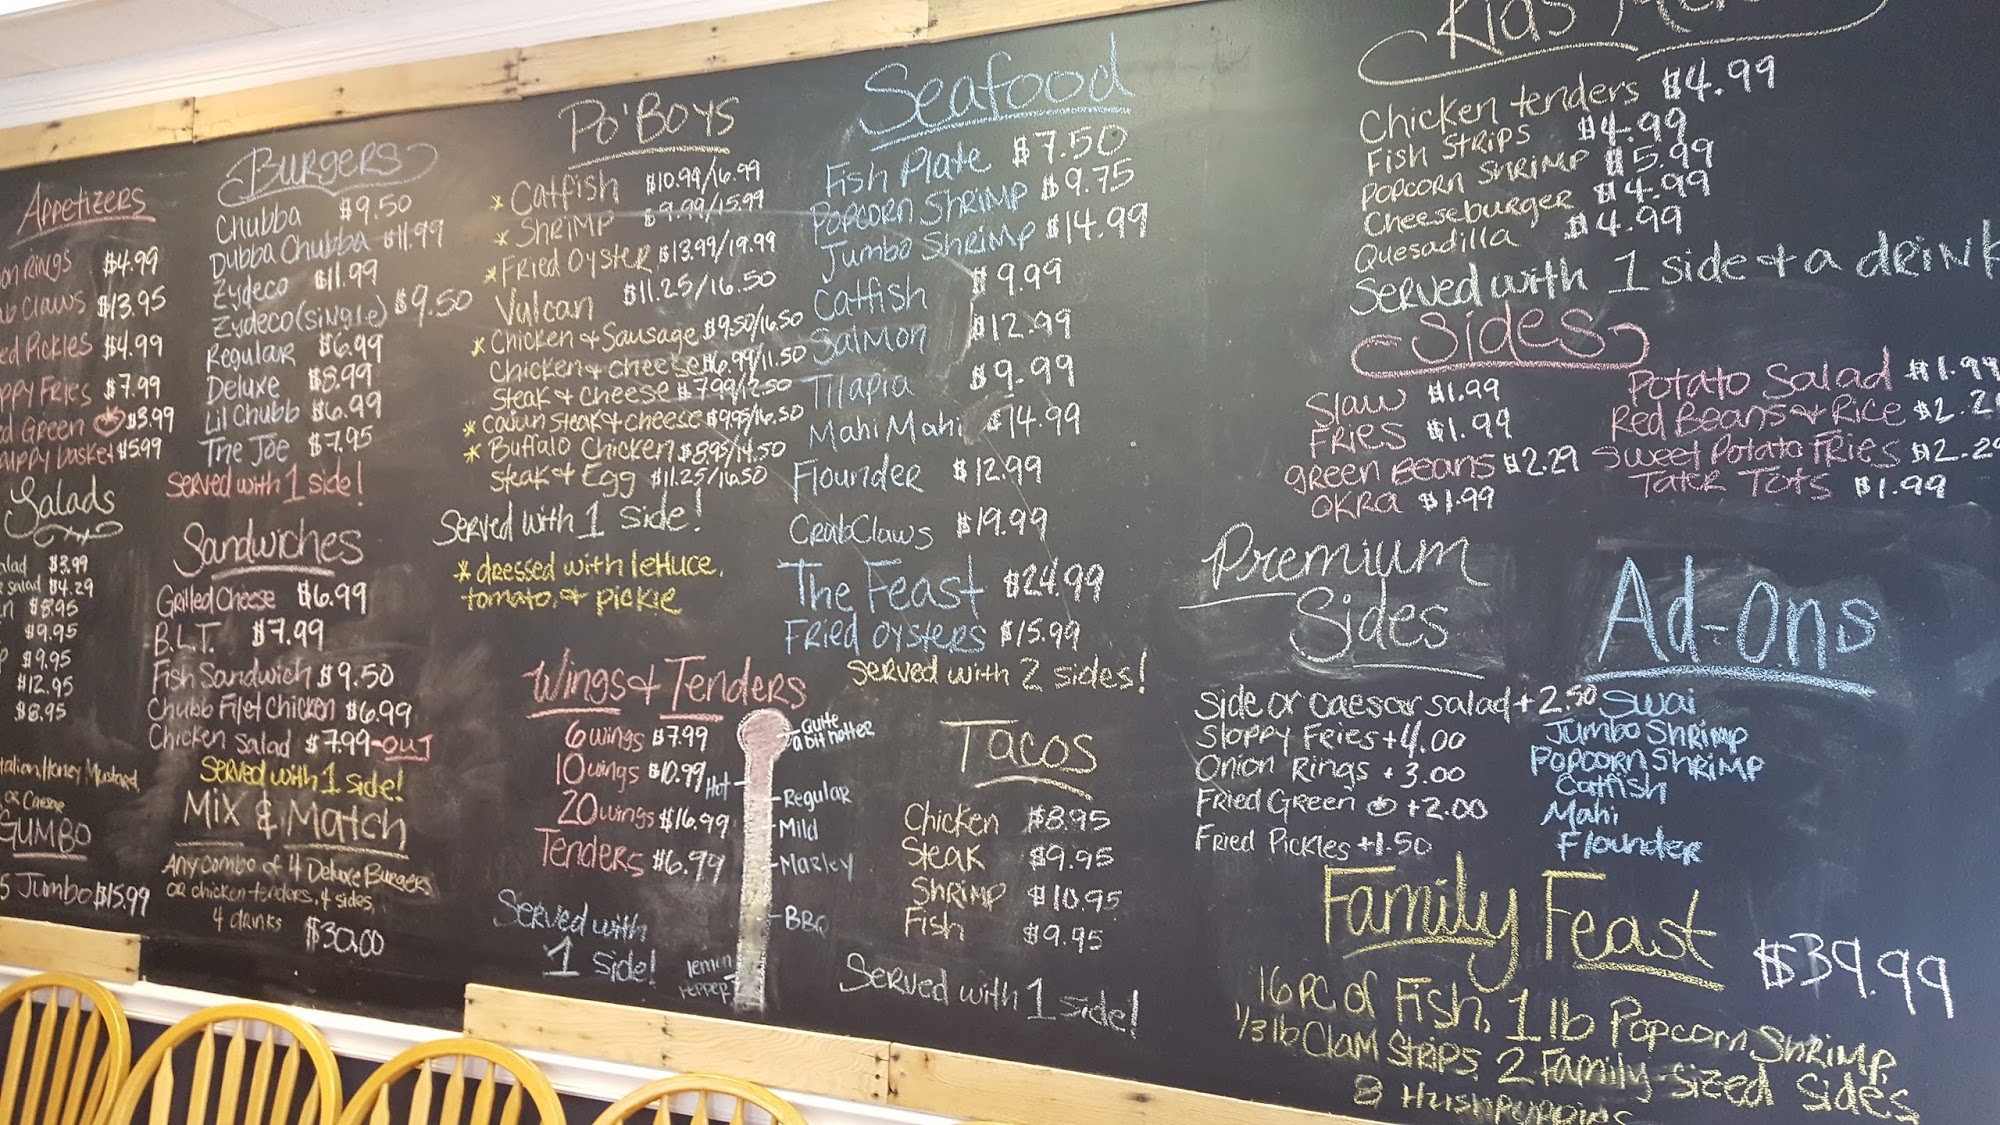 Appetizers
on Rings $4.99
ab Claws $13.95
ed Pickles $4.99
oppy Fries $7.99
ed Green $3.99
uppy basket $5.99
Salads
alad $3.99
e salad $4.29
en $8.95
$9.95
P $9.95
$12.95
$8.95
talian, Honey Mustard,
or Caesar
GUMBO
5 Jumbo $15.99
Burgers
Chubba $9.50
Dubba Chubba $11.99
Zydeco $11.99
Zydeco (single) $9.50
Regular $6.99
Deluxe $8.99
Lil Chubb $6.99
The Joe $7.95
Served with 1 side!
Sandwiches
Grilled Cheese $6.99
B.L.T. $7.99
Fish Sandwich $9.50
Chubb Filet Chicken $6.99
Chicken Salad $7.99-OUT
Served with 1 side!
Mix & Match
Any combo of 4 Deluxe Burgers
or chicken tenders, 4 sides,
4 drinks $30.00
Po'Boys
* Catfish $10.99/16.99
* Shrimp $9.99/15.99
* Fried Oyster $13.99/19.99
Vulcan $11.25/16.50
* Chicken & Sausage $9.50/16.50
Chicken & cheese $6.99/11.50
Steak & Cheese $7.99/12.50
* Cajun Steak & cheese $9.95/16.50
* Buffalo Chicken $8.95/14.50
Steak & Egg $11.25/16.50
Served with 1 side!
* dressed with lettuce,
tomato, & pickle
Wings & Tenders
6 wings $7.99
10 wings $10.99
20 wings $16.99
Tenders $6.99
Served with
1 side!
Quite
a bit hotter
Hot
Regular
Mild
Marley
BBQ
lemon
pepper
Seafood
Fish Plate $7.50
Popcorn Shrimp $9.75
Jumbo Shrimp $14.99
Catfish $9.99
Salmon $12.99
Tilapia $9.99
Mahi Mahi $14.99
Flounder $12.99
Crab Claws $19.99
The Feast $24.99
Fried Oysters $15.99
served with 2 sides!
Tacos
Chicken $8.95
Steak $9.95
Shrimp $10.95
Fish $9.95
Served with 1 side!
Kids' Menu
Chicken tenders $4.99
Fish Strips $4.99
Popcorn Shrimp $5.99
Cheeseburger $4.99
Quesadilla $4.99
Served with 1 side & a drink
Sides
Slaw $1.99
Fries $1.99
green Beans $2.29
Okra $1.99
Potato Salad $1.99
Red Beans & Rice $2.2
Sweet Potato Fries $2.29
Tater Tots $1.99
Premium
Sides
Side or caesar salad +2.50
Sloppy Fries +4.00
Onion Rings +3.00
Fried Green +2.00
Fried Pickles +1.50
Ad-Ons
Swai
Jumbo Shrimp
Popcorn Shrimp
Catfish
Mahi
Flounder
Family Feast $39.99
16 PC of Fish, 1 lb Popcorn Shrimp,
1/3 lb Clam Strips, 2 Family-sized sides
8 Hushpuppies